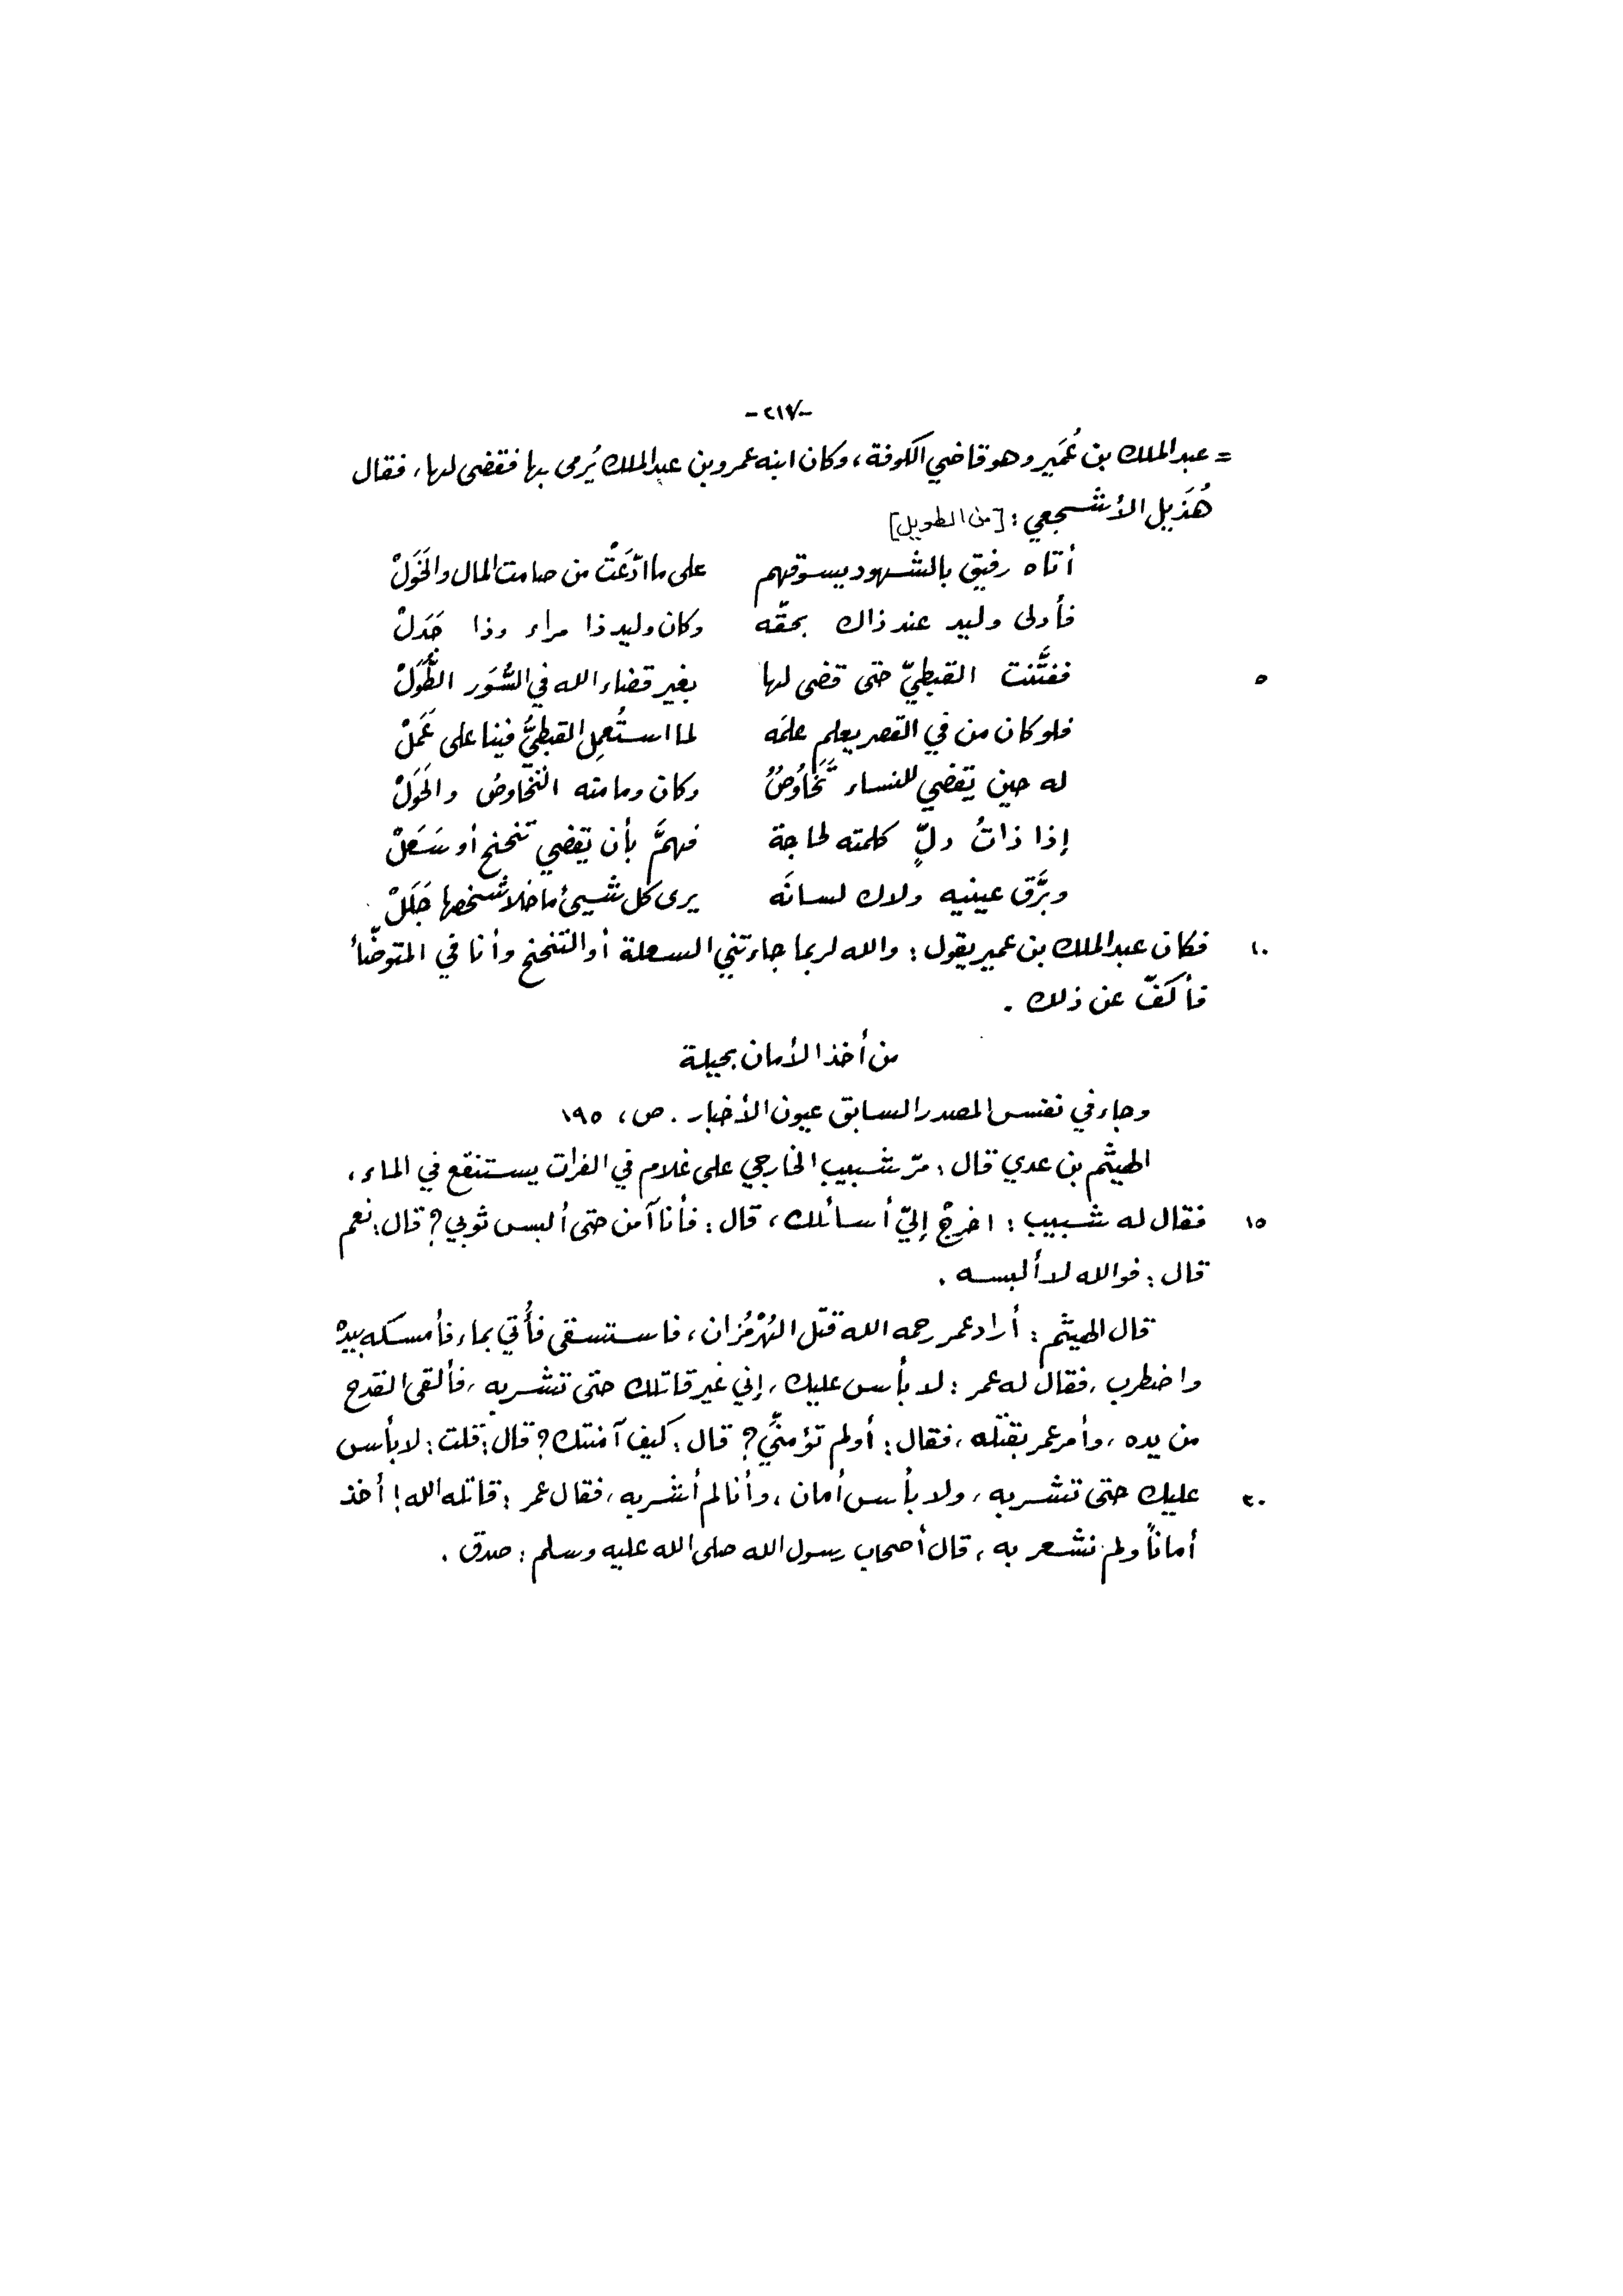 -٢١٧-
= عبد الملك بن عُمَير وهو قاضي الكوفة، وكان ابنه عمرو بن عبد الملك يُرمى بها فقضى لها، فقال
هُذَيل الأشجعي: [من الطويل]
أتاه رفيق بالشهود يسوقهم على ما ادّعَتْ من صامت المال والخَوَلْ
فأدلى وليد عند ذاك بحقّه وكان وليد ذا مراء وذا جَدَلْ
٥ ففتَّنت القبطيّ حتى قضى لها بغير قضاء الله في السُّوَر الطُّوَلْ
فلو كان من في القصر يعلم علمَه لما استُعمِل القبطيُّ فينا على عَمَلْ
له حين يقضي للنساء تَخَاوُصٌ وكان وما منه التّخاوصُ والحَوَلْ
إذا ذاتُ دلٍّ كلمته لحاجة فهمَّ بأن يقضي تنحنح أو سَعَلْ
وبرَّق عينيه ولاك لسانَه يرى كل شيئ ما خلا شخصها جَلَلْ
١٠ فكان عبد الملك بن عمير يقول: والله لربما جاءتني السعلة أو التنحنح وأنا في المتوضّأ
فأكفّ عن ذلك.
من أخذ الأمان بحيلة
وجاء في نفس المصدر السابق عيون الأخبار. ص، ١٩٥
الهيثم بن عدي قال: مرّ شبيب الخارجي على غلام في الفرات يستنقع في الماء،
١٥ فقال له شبيب: اخرجْ إليّ أسائلك، قال: فأنا آمن حتى ألبس ثوبي؟ قال: نعم
قال: فوالله لا ألبسه.
قال الهيثم: أراد عمر رحمه الله قتل الهُرْمُزان، فاستسقى فأُتي بماء فأمسكه بيده
واضطرب، فقال له عمر: لا بأس عليك، إني غير قاتلك حتى تشربه، فألقى القدح
من يده، وأمر عمر بقتله، فقال: أولم تؤمنّي؟ قال: كيف آمنتك؟ قال: قلت: لا بأس
٢٠ عليك حتى تشربه، ولا بأس أمان، وأنا لم أشربه، فقال عمر: قاتله الله! أخذ
أماناً ولم نشعر به، قال أصحاب رسول الله صلى الله عليه وسلم: صدق.